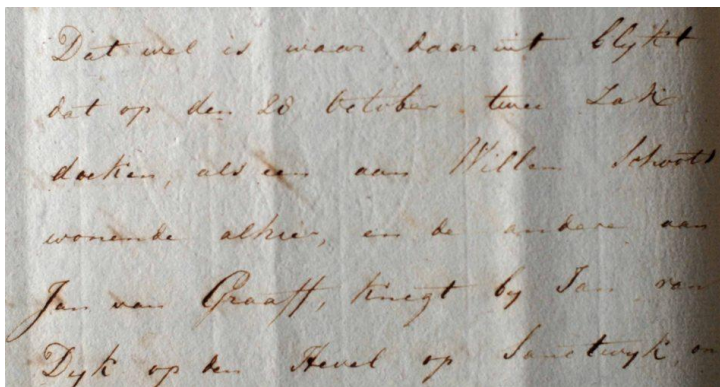 Dat wel is waar daar uit blykt
dat op den 28 October twee Zak
doeken, als een aan Willem Schoots
wonende alhier, en de andere aan
Jan van Graaff, knegt by Jan van
Dyk op den Hevel op